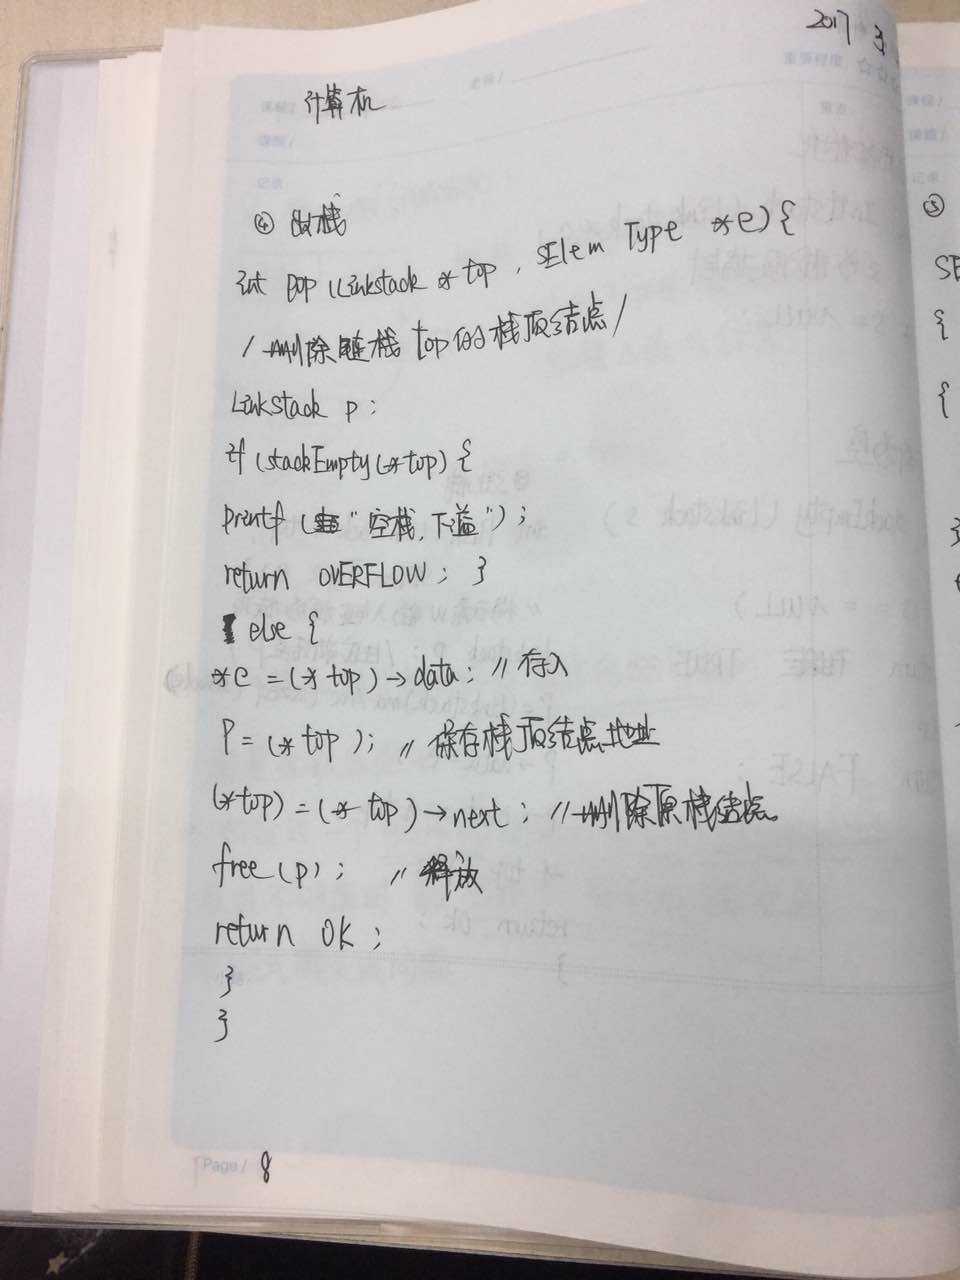 2017 3
计算机
④ 出栈
int pop (Linkstack *top , SElem Type *e) {
/删除链栈 top的栈顶结点/
LinkStack p ;
if (stackEmpty(*top) {
printf ( "空栈,下溢");
return OVERFLOW ; }
else {
*e = (* top) → data ; // 存入
P = (* top ) ; // 保存栈顶结点地址
(*top) = (* top) → next ; // 删除原栈结点
free (p) ; // 释放
return OK ;
}
}
Page / 8
⑤
SE
{
{